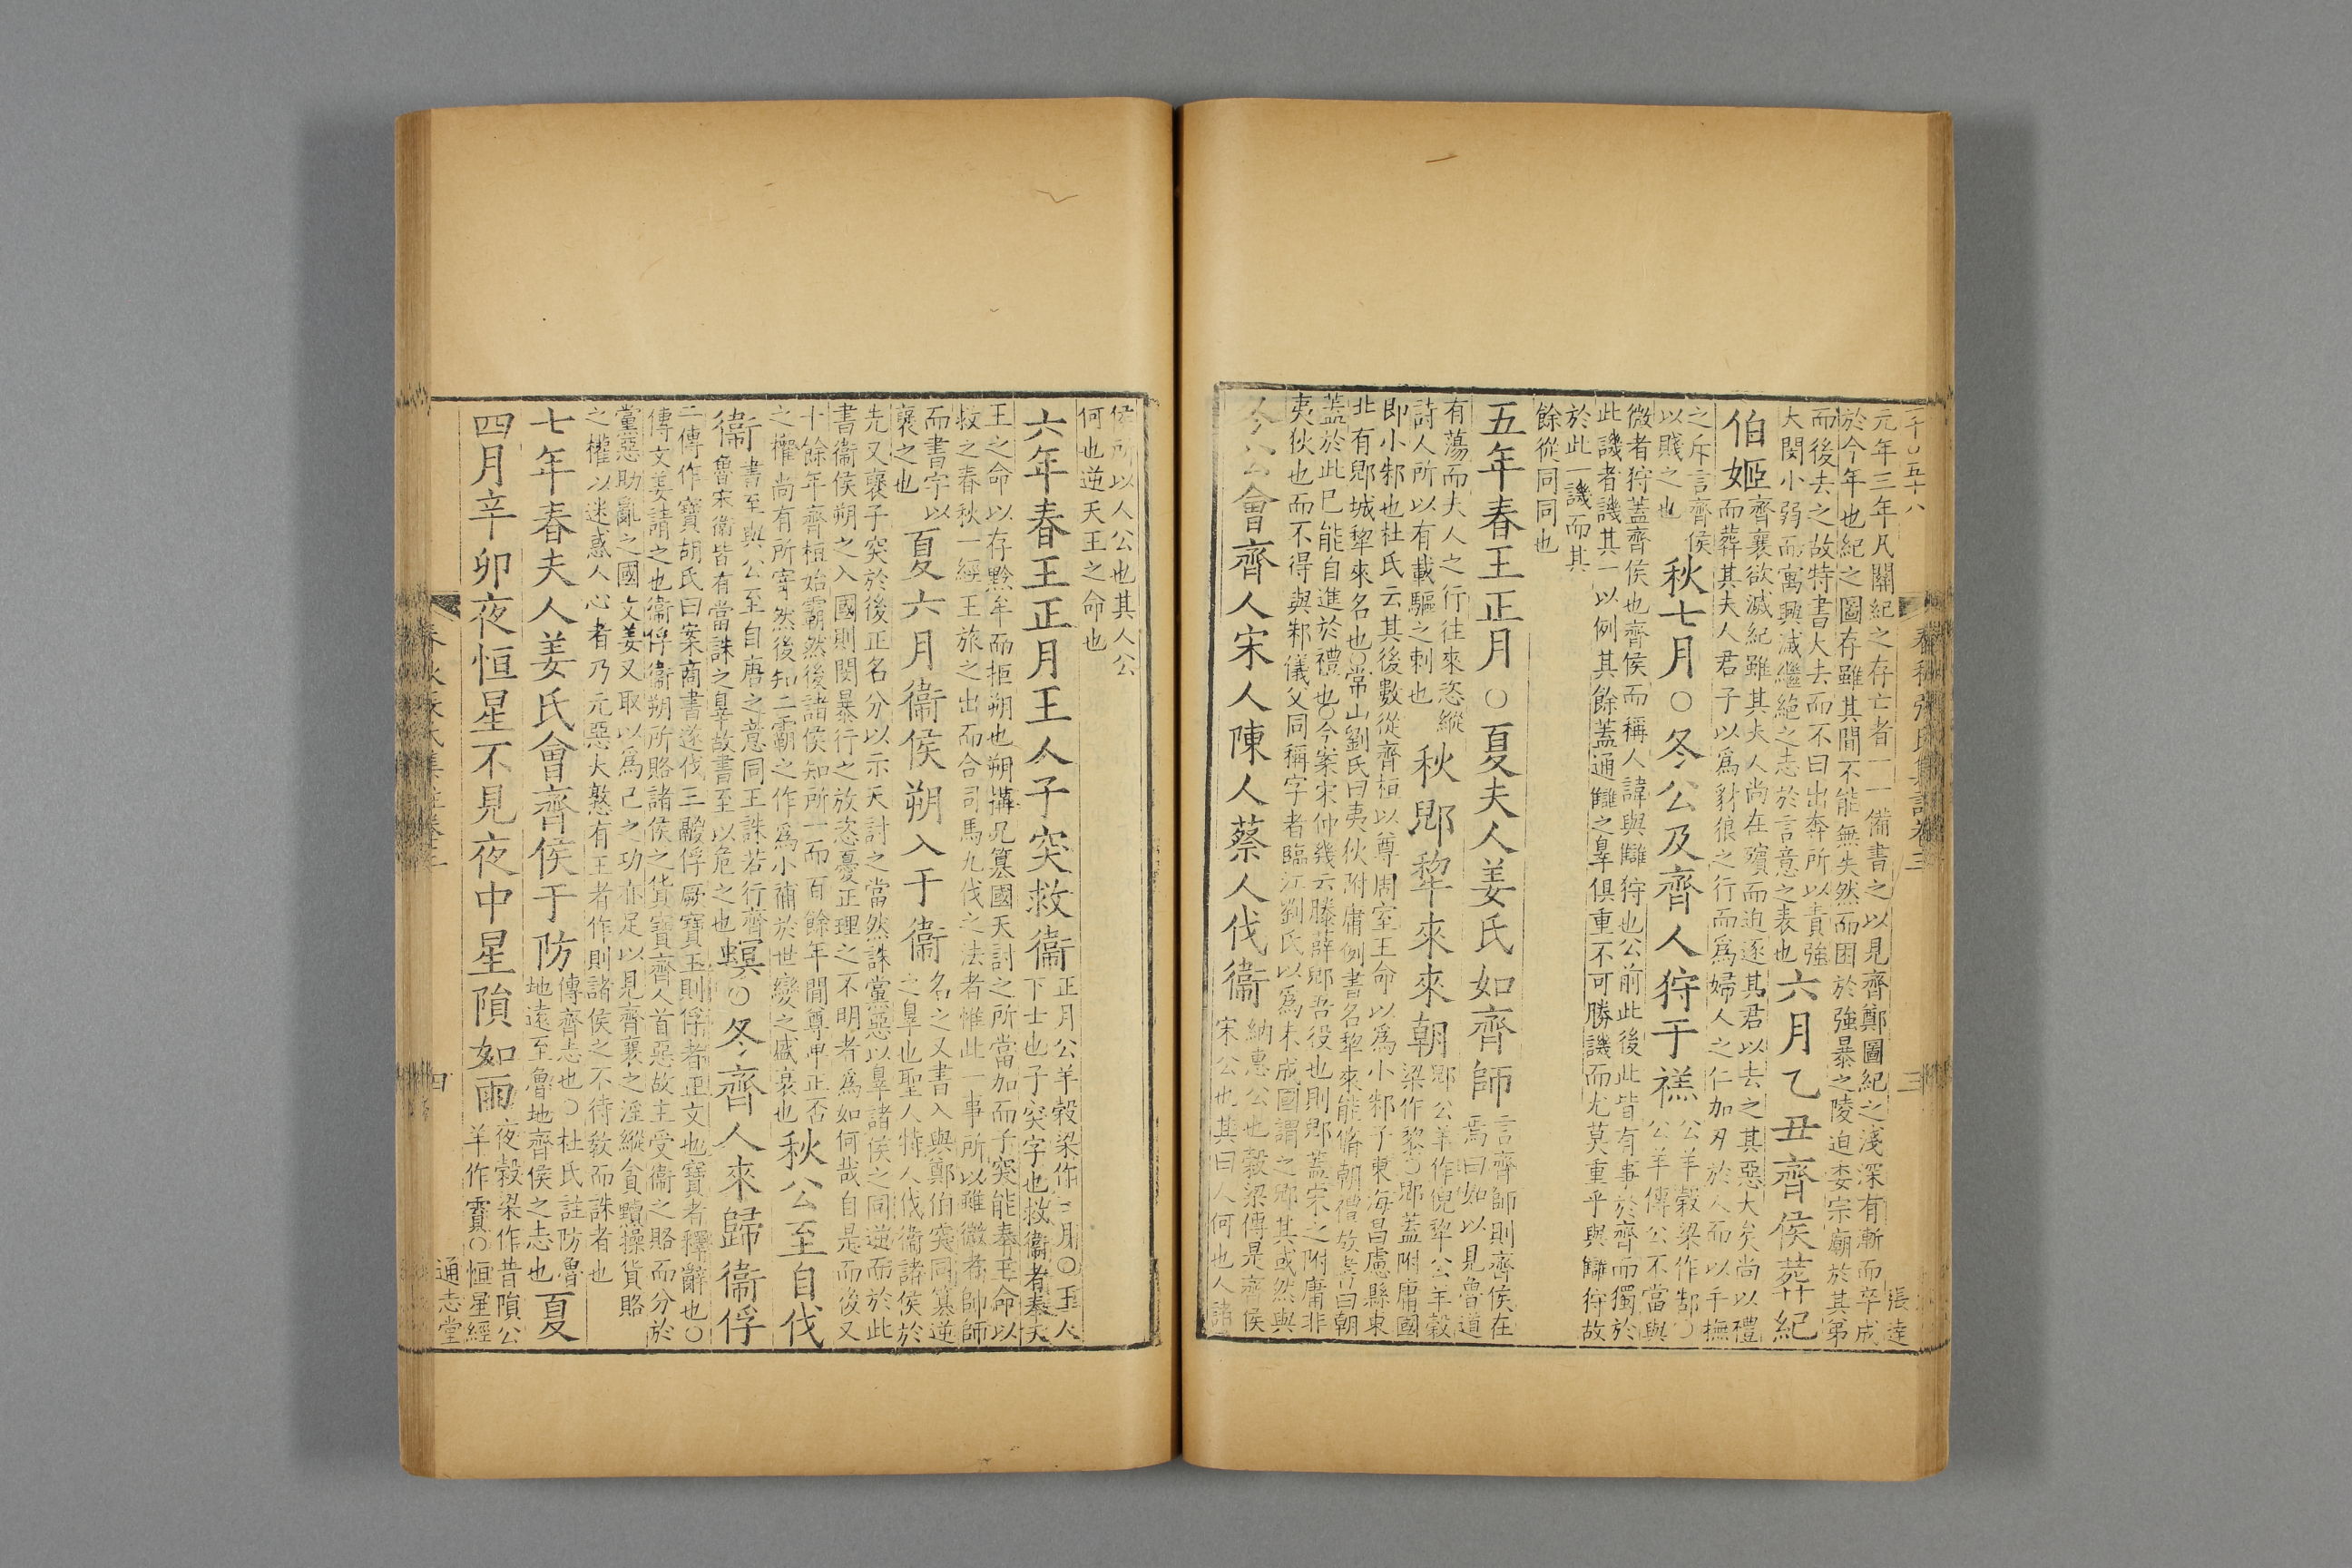 一千〇五十八
元年三年凡關紀之存亡者一一備書之以見齊鄭圖紀之淺深有漸而卒成
於今年也紀之圖存雖其間不能無失然而困於強暴之陵迫委宗廟於其弟
而後去之故特書大去而不曰出奔所以責強
大閔小弱而寓興滅繼絶之志於言意之表也
六月乙丑齊侯葬紀
伯姬
齊襄欲滅紀雖其夫人尚在殯而迫逐其君以去之其惡大矣尚以禮
而葬其夫人君子以為豺狼之行而為婦人之仁加刃於人而以手撫
之斥言齊侯
以賤之也
秋七月〇冬公及齊人狩于禚
公羊穀梁作郜〇
公羊傳公不當與
微者狩蓋齊侯也齊侯而稱人諱與讎狩也公前此後此皆有事於齊而獨於
此譏者譏其一以例其餘蓋通讎之辠俱重不可勝譏而尤莫重乎與讎狩故
於此一譏而其
餘從同同也
五年春王正月〇夏夫人姜氏如齊師
言齊師則齊侯在
焉曰如以見魯道
有蕩而夫人之行往來恣縱
詩人所以有載驅之刺也
秋郳犂來來朝
郳公羊作倪犂公羊穀
梁作黎〇郳蓋附庸國
即小邾也杜氏云其後數從齊桓以尊周室王命以為小邾子東海昌慮縣東
北有郳城犂來名也〇常山劉氏曰夷狄附庸例書名犂來能脩朝禮故書曰朝
蓋於此已能自進於禮也〇今案宋仲幾云滕薛郳吾役也則郳蓋宋之附庸非
夷狄也而不得與邾儀父同稱字者臨江劉氏以為未成國謂之郳其或然與
冬公會齊人宋人陳人蔡人伐衞
納惠公也穀梁傳是齊侯
宋公也其曰人何也人諸
春秋張氏集註卷三
三
張逵
侯所以人公也其人公
何也逆天王之命也
六年春王正月王人子突救衞
正月公羊穀梁作三月〇王人
下士也子突字也救衞者奉天
王之命以存黔牟而拒朔也朔搆兄簒國天討之所當加而子突能奉王命以
救之春秋一經王旅之出而合司馬九伐之法者惟此一事所以雖微者帥師
而書字以
襃之也
夏六月衞侯朔入于衞
名之又書入與鄭伯突同簒逆
之辠也聖人特人伐衞諸侯於
先又襃子突於後正名分以示天討之當然誅黨惡以辠諸侯之同逆而於此
書衞侯朔之入國則閔暴行之放恣憂正理之不明者為如何哉自是而後又
十餘年齊桓始霸然後諸侯知所一而百餘年間尊卑正否
之權尚有所宰然後知二霸之作為小補於世變之盛衰也
秋公至自伐
衞
書至與公至自唐之意同王誅若行齊
魯宋衞皆有當誅之辠故書至以危之也
螟〇冬齊人來歸衞俘
二傳作寶胡氏曰案商書遂伐三朡俘厥寶玉則俘者正文也寶者釋辭也〇
傳文姜請之也衞俘衞朔所賂諸侯之貨寶齊人首惡故主受衞之賂而分於
黨惡助亂之國文姜又取以為己之功亦足以見齊襄之淫縱貪黷操貨賂
之權以迷惑人心者乃元惡大憝有王者作則諸侯之不待敎而誅者也
七年春夫人姜氏會齊侯于防
傳齊志也〇杜氏註防魯
地遠至魯地齊侯之志也
夏
四月辛卯夜恒星不見夜中星隕如雨
夜穀梁作昔隕公
羊作霣〇恒星經
春秋張氏集註卷三
四
通志堂